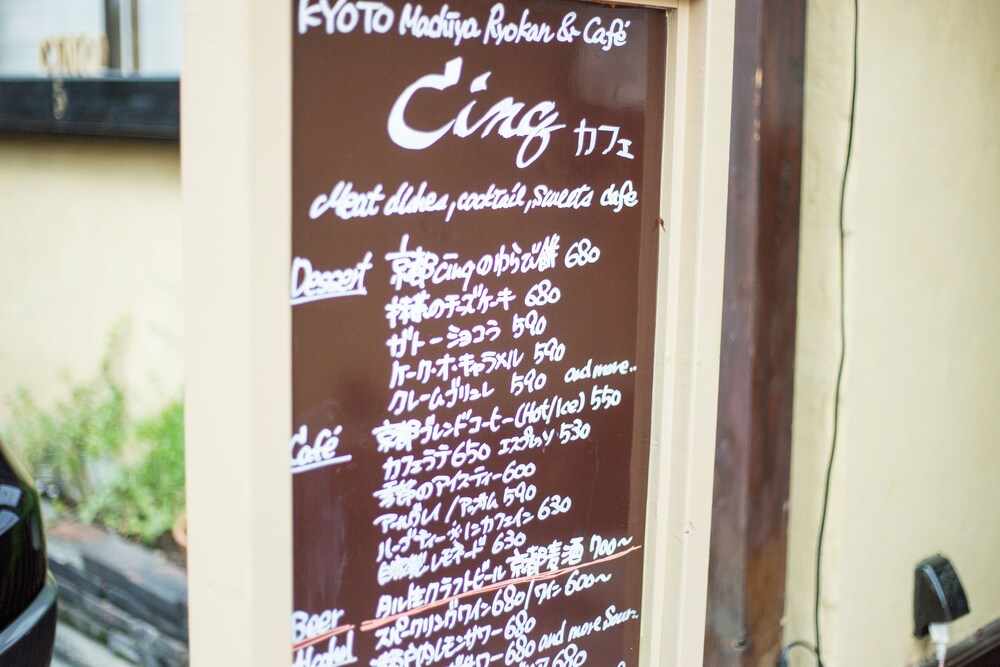 KYOTO Machiya Ryokan & Café
Cinq カフェ
Meat dishes, cocktail, sweets cafe
Dessert 京都cinqのわらび餅 680
抹茶のチーズケーキ 680
ガトーショコラ 590
ケーク・オ・キャラメル 590
クレームブリュレ 590 and more..
Café 京都ブレンドコーヒー(Hot/Ice) 550
カフェラテ 650 エスプレッソ 530
季節のアイスティー 600
アールグレイ/アッサム 590
ハーブティー※ノンカフェイン 630
自家製レモネード 630
Beer タル生クラフトビール 京都麦酒 700~
Alcohol スパークリングワイン 680/ワイン 600~
レモンサワー 680
サワー 680 and more Sour..
680